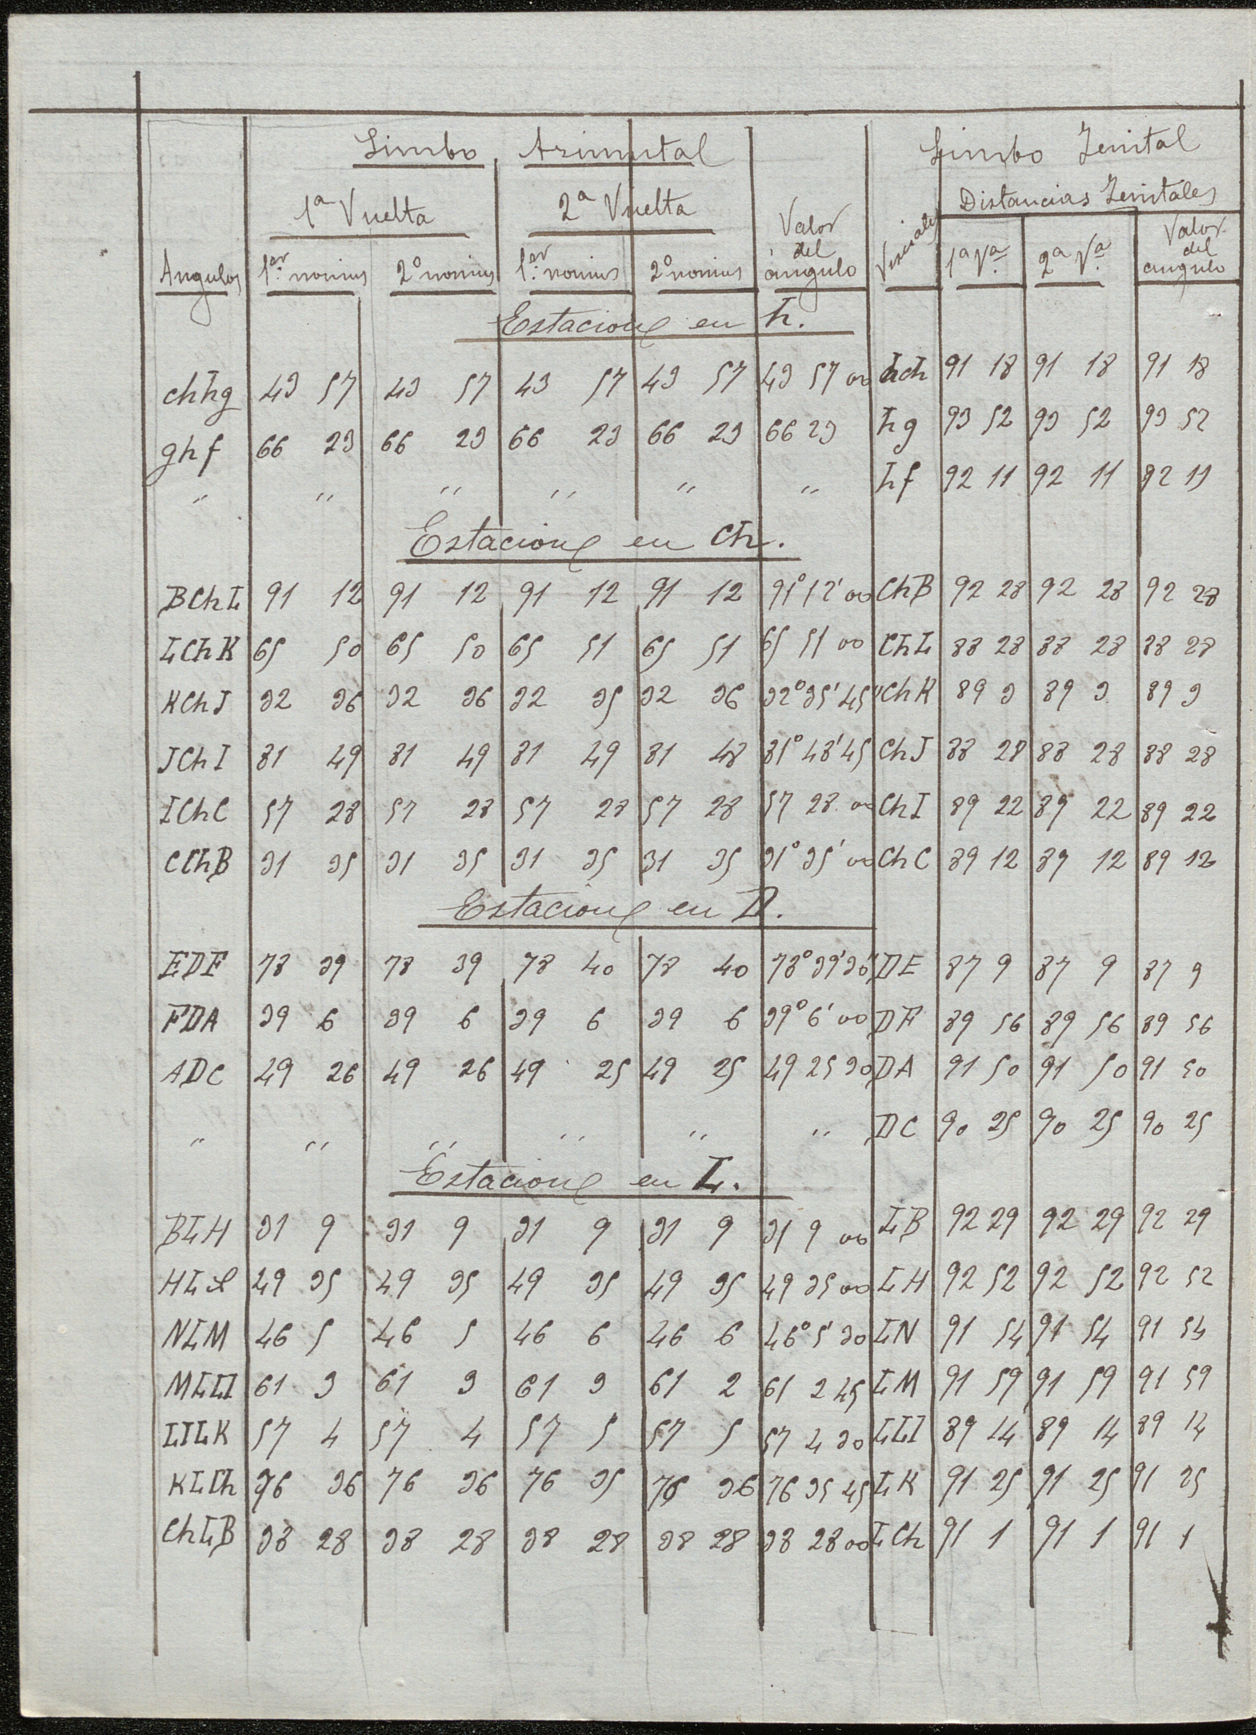 Limbo Azimutal Limbo Zenital
1ª Vuelta 2ª Vuelta Valor del ángulo Visuales Distancias Zenitales
Angulos 1er. nonius 2º nonius 1er. nonius 2º nonius 1ª Vª 2ª Vª Valor del angulo
Estacione en h.
chhg 43 57 43 57 43 57 43 57 43 57 00 hch 91 18 91 18 91 18
ghf 66 23 66 23 66 23 66 23 66 23 hg 93 52 93 52 93 52
" " " " " " hf 92 11 92 11 92 11
Estacione en Ch.
BChL 91 12 91 12 91 12 91 12 91º 12' 00 ChB 92 28 92 28 92 28
LChK 65 50 65 50 65 51 65 51 65 51 00 ChL 88 28 88 28 88 28
KChJ 32 36 32 36 32 35 32 36 32º 35' 45" ChK 89 3 89 3 89 3
JChI 81 49 81 49 81 49 81 48 81º 48' 45 ChJ 88 28 88 28 88 28
IChC 57 28 57 28 57 28 57 28 57 28 00 ChI 89 22 89 22 89 22
CChB 31 35 31 35 31 35 31 35 31º 35' 00 ChC 89 12 89 12 89 12
Estacione en D.
EDF 78 39 78 39 78 40 78 40 78º 39' 30" DE 87 9 87 9 87 9
FDA 39 6 39 6 39 6 39 6 39º 6' 00 DF 89 56 89 56 89 56
ADC 49 26 49 26 49 25 49 25 49 25 30 DA 91 50 91 50 91 50
" " " " " " DC 90 25 90 25 90 25
Estacione en L.
BLH 31 9 31 9 31 9 31 9 31 9 00 LB 92 29 92 29 92 29
49 35 49 35 49 35 49 35 49 35 00 LH 92 52 92 52 92 52
NLM 46 5 46 5 46 6 46 6 46º 5' 30 LN 91 54 91 54 91 54
MLLI 61 3 61 3 61 3 61 2 61 2 45 LM 91 59 91 59 91 59
LILK 57 4 57 4 57 5 57 5 57 4 30 LLI 89 14 89 14 89 14
KLCh 76 36 76 36 76 35 76 36 76 35 45 LK 91 25 91 25 91 25
ChLB 38 28 38 28 38 28 38 28 38 28 00 LCh 91 1 91 1 91 1